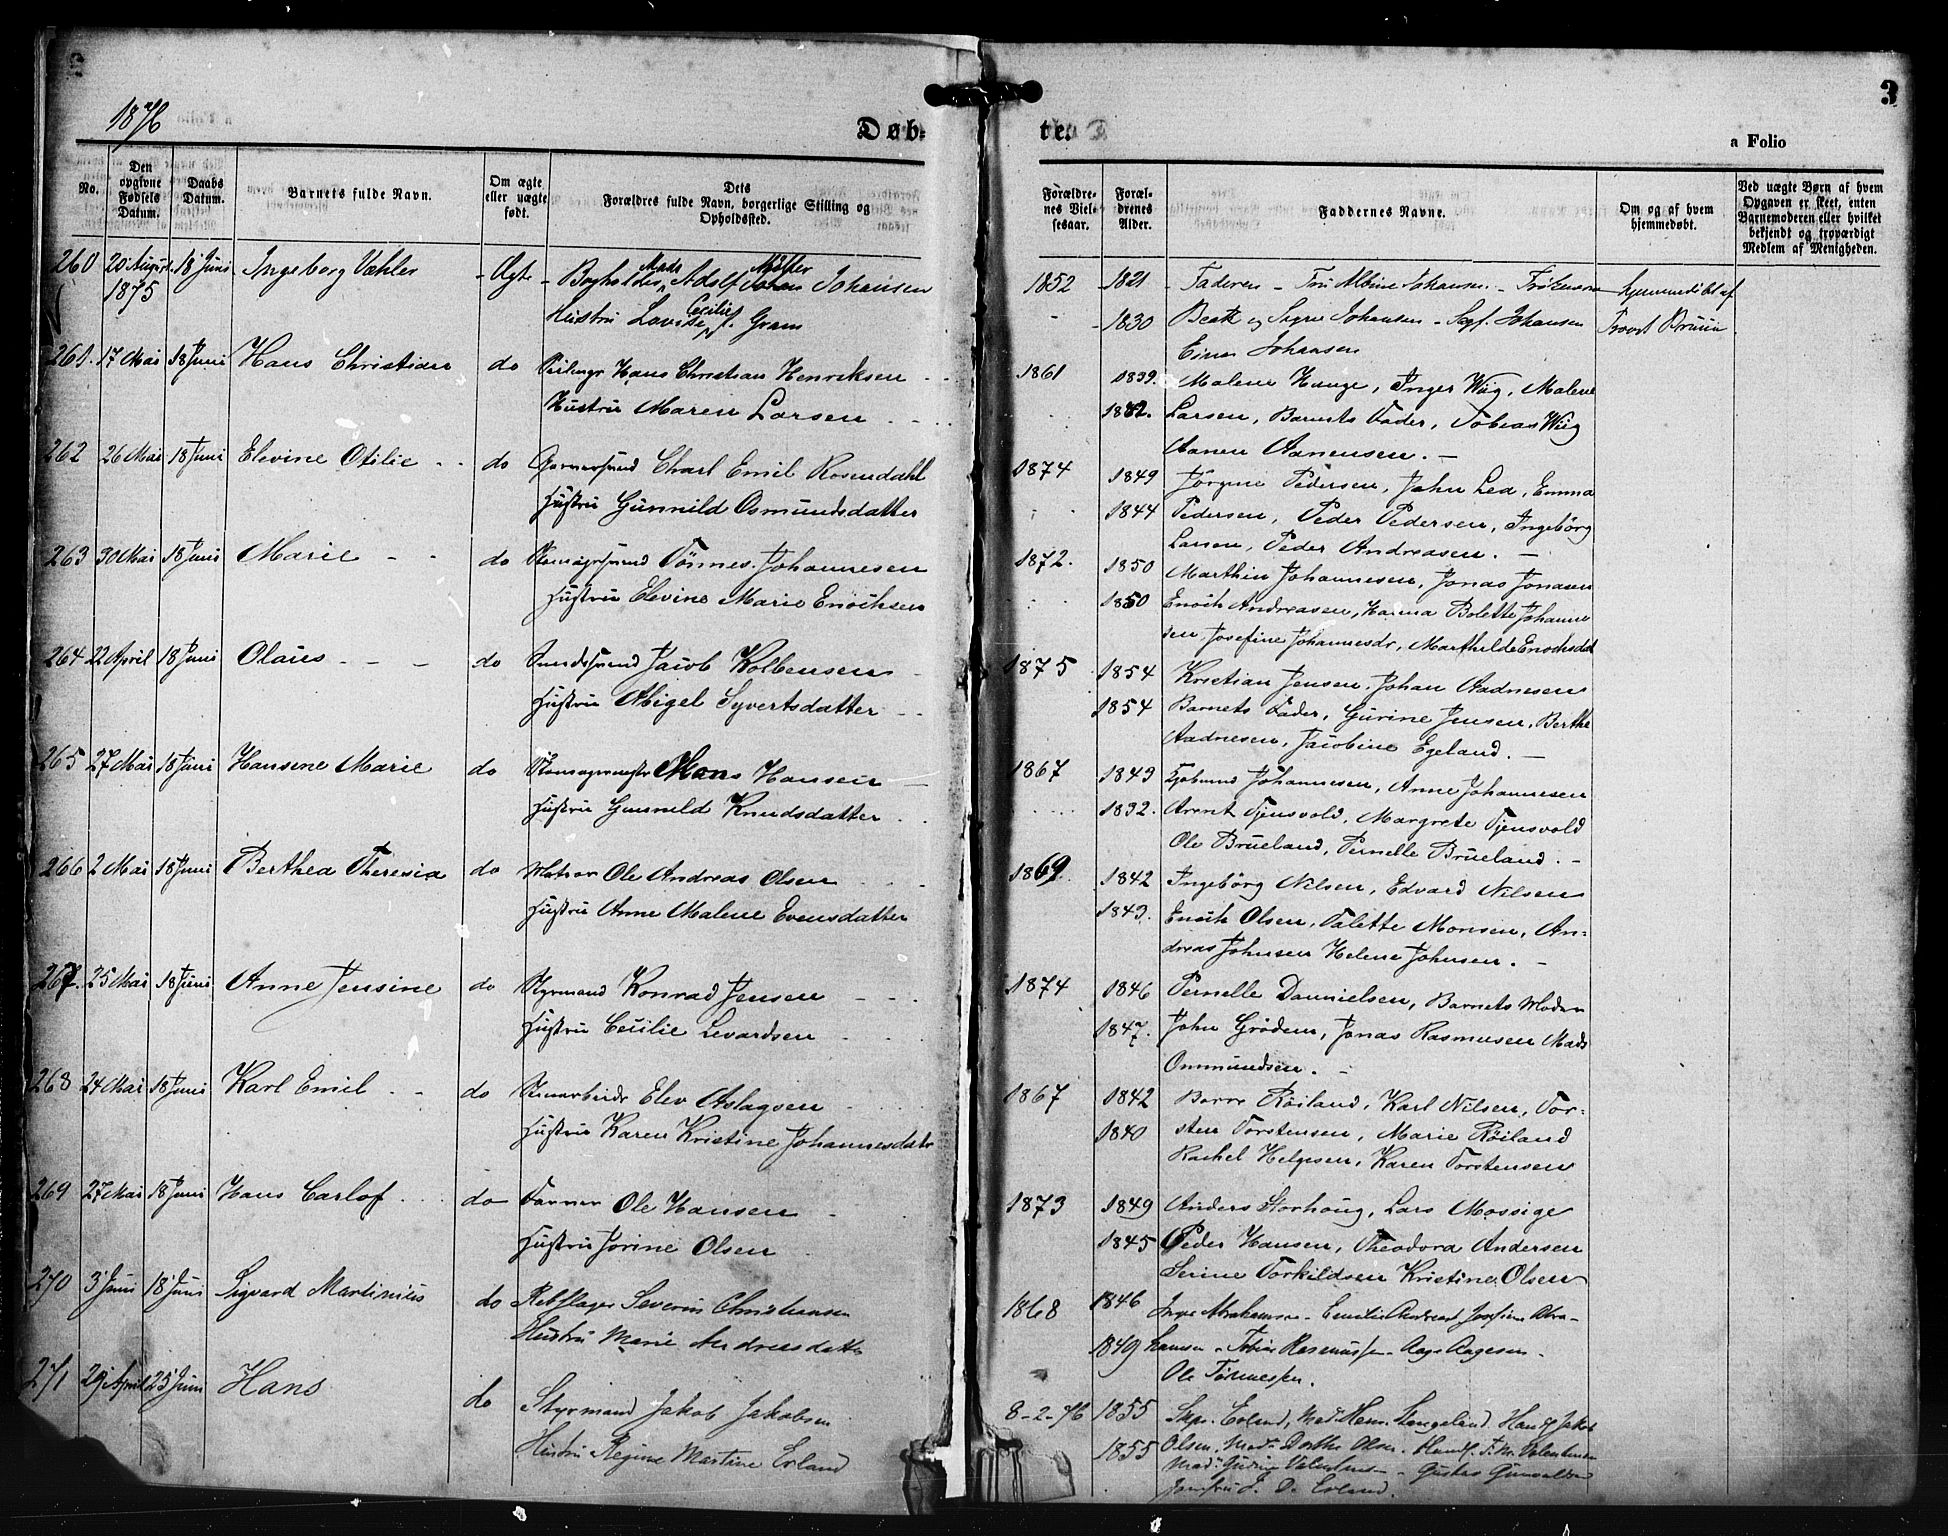 1876
Døb-
te.
3
a Folio
No.
Den opgivne Fødsels Datum.
Daabs Datum.
Barnets fulde Navn.
Om ægte eller uægte født.
Dets Forældres fulde Navn, borgerlige Stilling og Opholdssted.
Forældrenes Vielsesaar.
Forældrenes Alder.
Faddernes Navne.
Om og af hvem hjemmedøbt.
Ved uægte Børn af hvem Opgaven er skeet, enten Barnemoderen eller hvilket bekjendt og troværdigt Medlem af Menigheden.
260 20 August 18 Juni Ingeborg Væhler Ægte Bogholder Mads Adolf Møller Johansen 1852 1821 Faderen - Fru Albine Johansen - Frøknerne hjemmedøbt af
1875 Hustru Lovise Cecilie f. Gram 1830 Beate og Signe Johansen - Johansen Provst Bruun
Einar Johansen
261. 17 Mai 18 Juni Hans Christian do Hans Christian Henriksen 1861 1839. Malene Hauge, Inger Wiig, Malene
Hustru Maren Larsen Larsen, Barnets Fader, Tobias Wiig
Aanen Aanensen.
262 26 Mai 18 Juni Elevine Otilie do Garversvend Charl Emil Rosendahl 1874 1849 Jørgine Pedersen, John Lea, Emma
Hustru Gunnild Osmundsdatter 1844 Pedersen, Peder Pedersen, Ingebørg
Larsen, Peder Andreasen.
263 30 Mai 18 Juni Marie do Tønnes Johannesen 1872. 1850 Marthin Johannesen, Jonas Jonasen
Hustru Elevine Marie Enochsen 1850 Enoch Andreasen, Hanna Bolette Johanne
sen, Josefine Johannesdr, Marthilde Enochsdat
264 22 April 18 Juni Olaus do Jacob Kolbensen 1875 1854 Kristian Jensen, Johan Aadnesen
Hustru Abigel Syvertsdatter 1854 Barnets Fader, Gurine Jensen, Berthe
Aadnesen, Jacobine Egeland.
265 27 Mai 18 Juni Hansene Marie do Mons Hansen 1867 1843 Johannesen, Anne Johannesen
Hustru Gunnild Knudsdatter 1832. Arent Tjensvold, Margrete Tjensvold
Ole Brueland, Pernelle Brueland.
266 2 Mai 18 Juni Berthea Theresia do Matros Ole Andreas Olsen 1869. 1842 Ingebørg Nilsen, Edvard Nilsen
Hustru Anne Malene Evensdatter 1843. Enoch Olsen, Valette Monsen, An-
dreas Johnsen Helene Johnsen.
267. 25 Mai 18 Juni Anne Jensine do Styrmand Konrad Jensen 1874 1846 Pernelle Dannielsen, Barnets Moder
Hustru Cecilie Levardsen 1847. John Grødem, Jonas Rasmusen Mads
Ommundsen.
268 24 Mai 18 Juni Karl Emil do Elev Aslagsen 1867 1842 Røiland, Karl Nilsen, Tor-
Hustru Karen Kristine Johannesdatr 1840 sten Torstensen, Marie Røiland
Rachel Helgesen, Karen Torstensen
269 27 Mai 18 Juni Hans Carlof do Farver Ole Hansen 1873 1849 Anders Storhoug, Lars Mossige
Hustru Jorine Olsen 1845 Peder Hansen, Theodora Andersen
Serine Torkildsen Kristine Olsen
270 3 Juni 18 Juni Sigvard Martinius do Rebslager Severin Christensen 1868 1846 Abrahamsen - Josefine Abra-
Hustru Marie Andreasdatter 1849 hamsen - Tobias Rasmussen - Aage Aagesen -
Ole Tønnessen.
271 29 April 25 Juni Hans do Styrmand Jakob Jakobsen 8-2-76 1855 Skpr. Erland, Mad: Langeland.
Hustru Regine Martine Erland 1855 Olsen, Mad: Dorthe Olsen.
Mad: Gurine Valentinsen - Gustav
D. Erland.